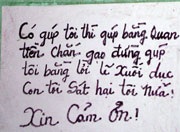 Có gúp tôi thì gúp bằng Quan
tiền Chăn, gạo đừng gúp
tôi bằng lời lẽ Xuôi dục
Con tôi Sát hại tôi Nữa!
Xin Cảm Ơn!